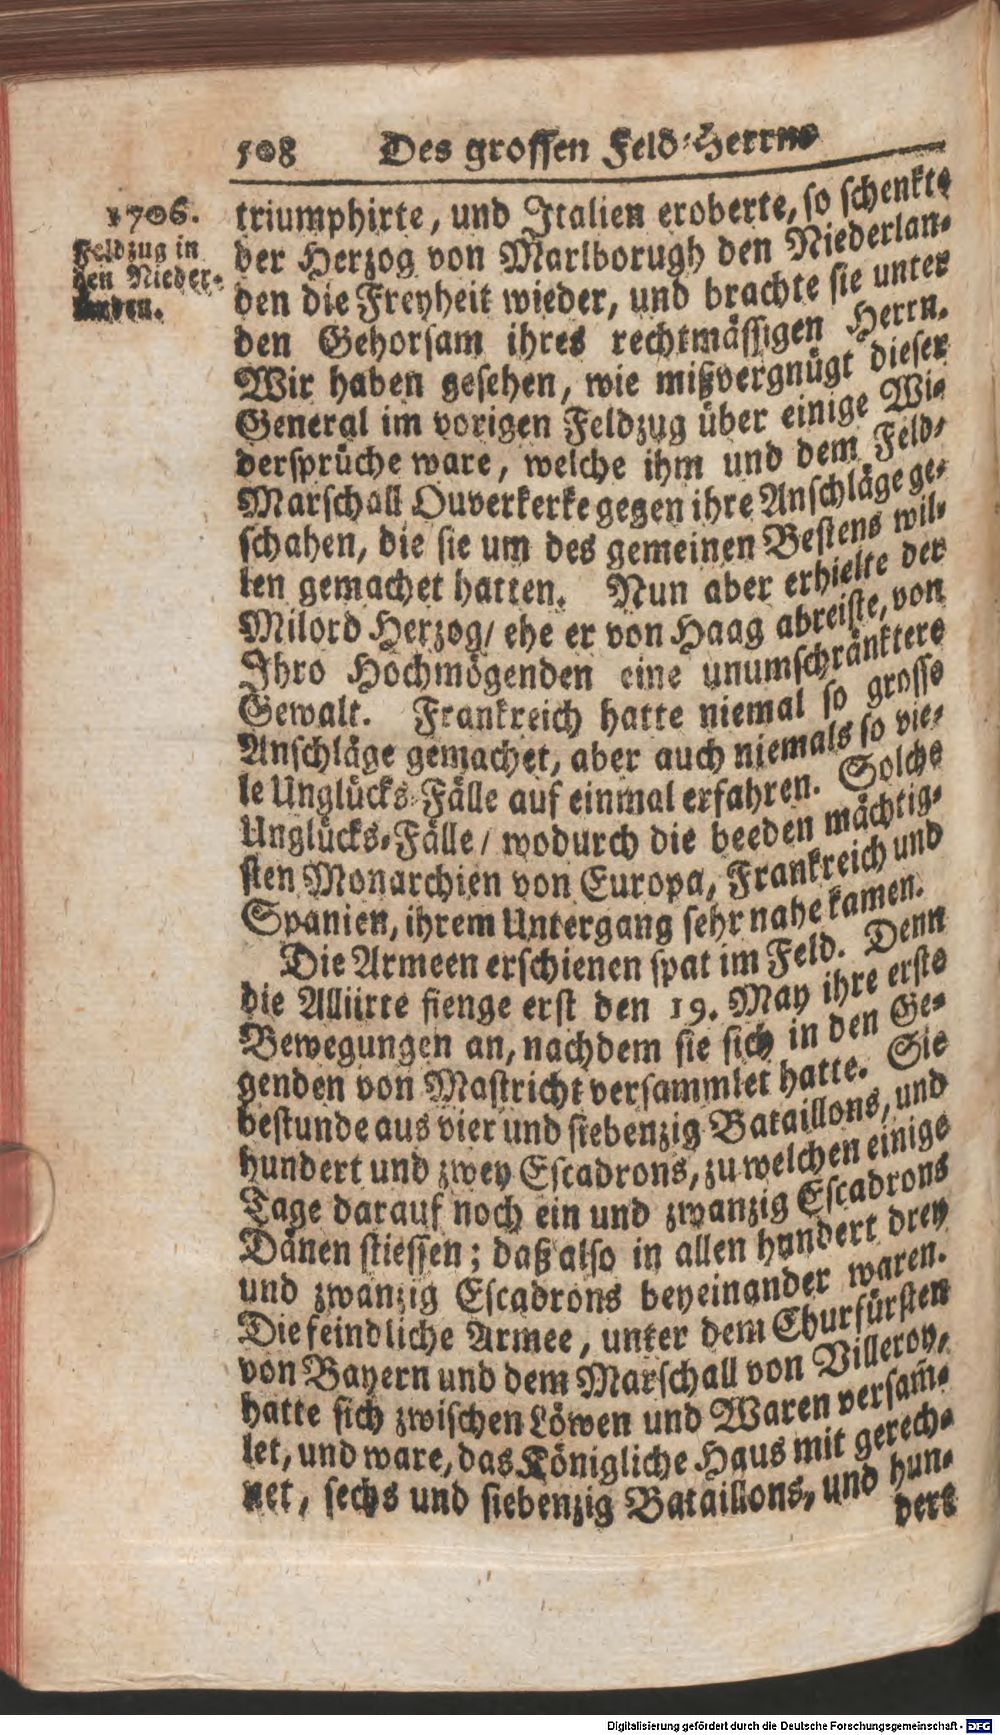 508 Des grossen Feld-Herrns
1706.
Feldzug in
den Nieder-
landen.
triumphirte, und Italien eroberte, so schenkte
der Herzog von Marlborugh den Niederlan-
den die Freyheit wieder, und brachte sie unter
den Gehorsam ihres rechtmässigen Herrn.
Wir haben gesehen, wie mißvergnügt dieser
General im vorigen Feldzug über einige Wi-
dersprüche ware, welche ihm und dem Feld-
Marschall Ouverkerke gegen ihre Anschläge ge-
schahen, die sie um des gemeinen Bestens wil-
len gemachet hatten. Nun aber erhielte der
Milord Herzog/ ehe er von Haag abreiste, von
Ihro Hochmögenden eine unumschränktere
Gewalt. Frankreich hatte niemal so grosse
Anschläge gemachet, aber auch niemals so vie-
le Unglücks-Fälle auf einmal erfahren. Solche
Unglücks-Fälle / wodurch die beeden mächtig-
sten Monarchien von Europa, Frankreich und
Spanien, ihrem Untergang sehr nahe kamen.
Die Armeen erschienen spat im Feld. Denn
die Alliirte fienge erst den 19. May ihre erste
Bewegungen an, nachdem sie sich in den Ge-
genden von Mastricht versammlet hatte. Sie
bestunde aus vier und siebenzig Bataillons, und
hundert und zwey Escadrons, zu welchen einige
Tage darauf noch ein und zwanzig Escadrons
Dänen stiessen; daß also in allen hundert drey
und zwanzig Escadrons beyeinander waren.
Die feindliche Armee, unter dem Churfürsten
von Bayern und dem Marschall von Villeroy,
hatte sich zwischen Löwen und Waren versam̃-
let, und ware, das Königliche Haus mit gerech-
net, sechs und siebenzig Bataillons, und hun-
dert
Digitalisierung gefördert durch die Deutsche Forschungsgemeinschaft - DFG